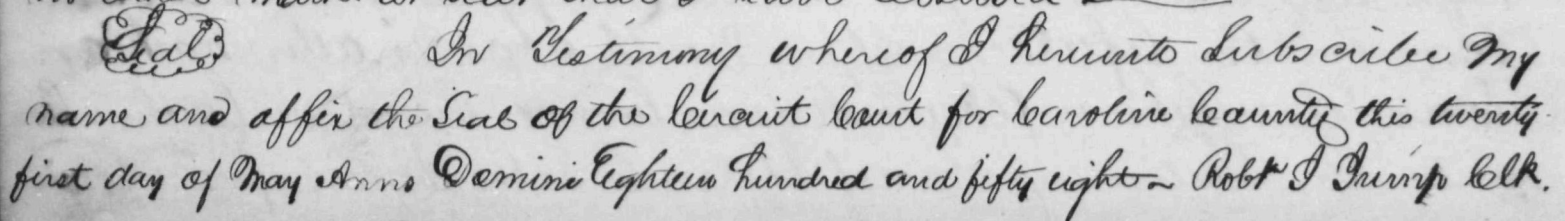 Seal In Testimony whereof I hereunto Subscribe My
name and affix the Seal of the Circuit Court for Caroline County this twenty
first day of May Anno Domini Eighteen hundred and fifty eight ~ Robt J Trump Clk.